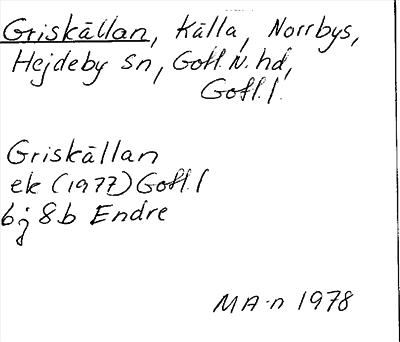 Griskällan, Källa, Norrbys,
Hejdeby sn, Gotl. N. hd,
Gotl. l.
Griskällan
ek (1977) Gotl. l
6j 8b Endre
MA-n 1978